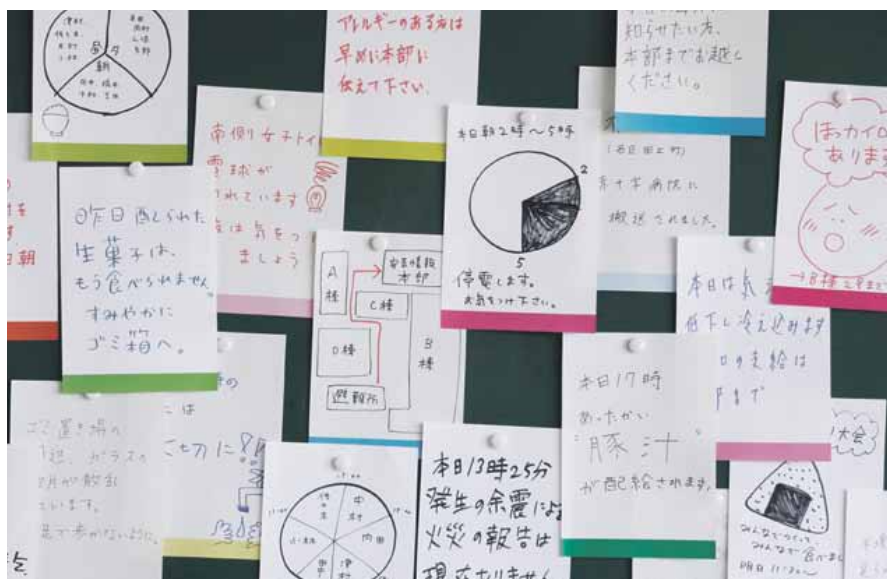 昼
夕
朝
アレルギーのある方は
早めに本部に
伝えて下さい。
知らせたい方、
本部までお越し
ください。
南側女子トイ
電球が
れています
気をつ
ましょう
本日朝2時〜5時
2
5
停電します。
お気をつけ下さい。
病院に
搬送されました。
ほっカイロ
あります
→B棟2階まで
昨日配られた
生菓子は、
もう食べられません。
すみやかに
ゴミ箱へ。
朝
A
棟
本部
C棟
D棟
B
棟
避難所
本日は気
低下し冷え込みます
の支給は
まで
本日17時
あったかい
"豚汁"
が配給されます。
ゴミ置き場の
ガラスの
が散乱
ています。
で歩かないように。
の
は
切に
中
村
内田
小林
津村
田中
本日13時25分
発生の余震による
火災の報告は
現在ありません
大会
みんなでつくって、
みんなで食べま
明日11:30〜